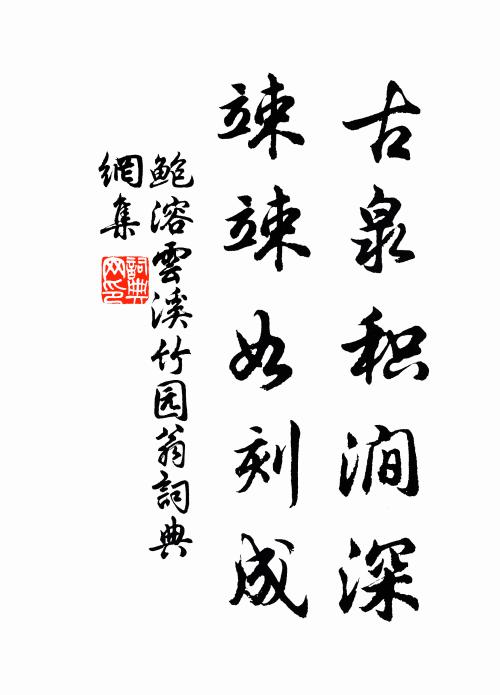 古泉积涧深
竦竦如刻成
鲍溶雲溪竹园翁詞典
網集
詞典
网印